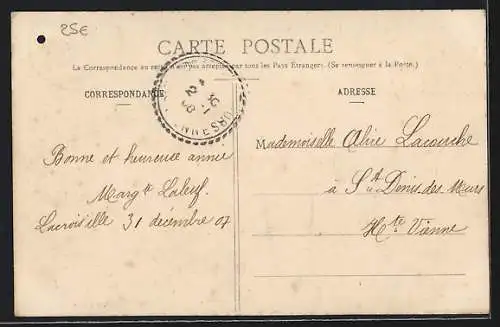 25€
CARTE POSTALE
La Correspondance au recto n'est pas acceptée par tous les Pays Étrangers. (Se renseigner à la Poste.)
CORRESPONDANCE
ADRESSE
Bonne et heureuse année
Margte Labeuf.
31 décembre 07
Mademoiselle Alice Lacouche
à St Denis des Murs
Hte Vienne